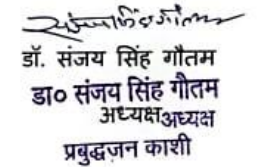 संजय सिंह गौतम
डॉ. संजय सिंह गौतम
डा० संजय सिंह गौतम
अध्यक्षअध्यक्ष
प्रबुद्धजन काशी